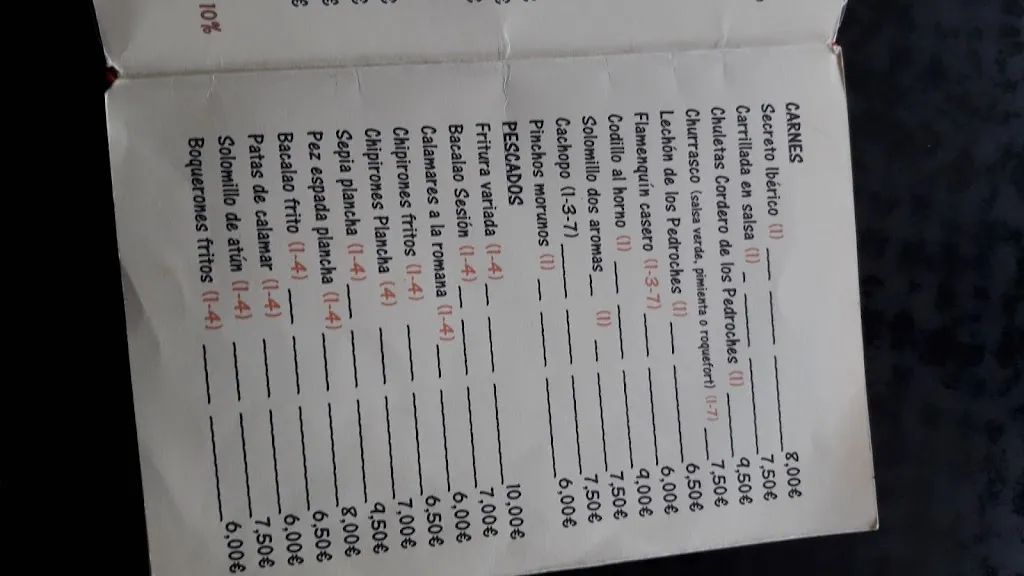 10%
CARNES
Secreto Ibérico (1) 8,00€
Carrillada en salsa (1) 7,50€
Chuletas Cordero de los Pedroches (1) 9,50€
Churrasco (salsa verde, pimienta o roquefort) (1-7) 7,50€
Lechón de los Pedroches (1) 6,50€
Flamenquín casero (1-3-7) 6,00€
Codillo al horno (1) 9,00€
Solomillo dos aromas (1) 7,50€
Cachopo (1-3-7) 7,50€
Pinchos morunos (1) 6,00€
PESCADOS
Fritura variada (1-4) 10,00€
Bacalao Sesión (1-4) 7,00€
Calamares a la romana (1-4) 6,00€
Chipirones fritos (1-4) 6,50€
Chipirones Plancha (4) 7,00€
Sepia plancha (1-4) 9,50€
Pez espada plancha (1-4) 8,00€
Bacalao frito (1-4) 6,50€
Patas de calamar (1-4) 6,00€
Solomillo de atún (1-4) 7,50€
Boquerones fritos (1-4) 6,00€